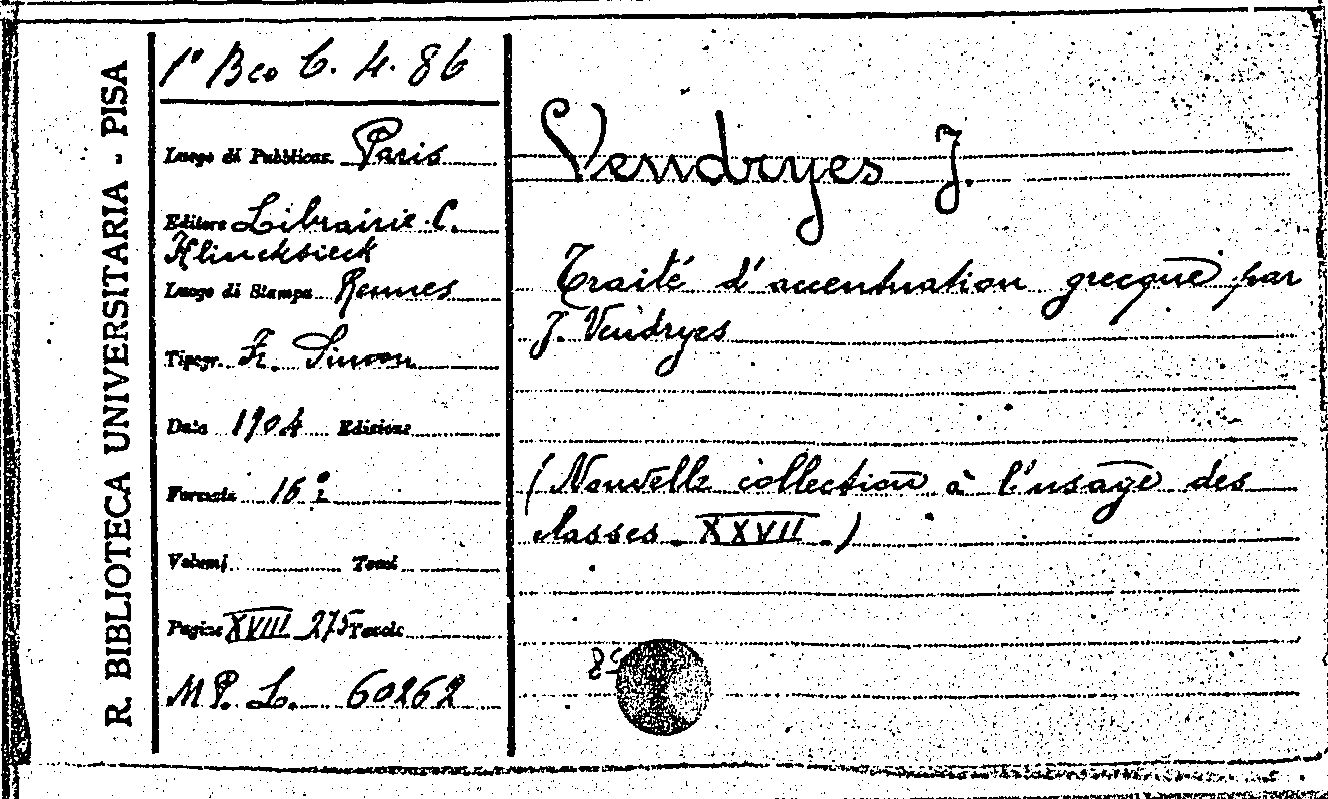 R. BIBLIOTECA UNIVERSITARIA - PISA
1° Bco 6. 4. 86
Luogo di Pubblicaz. Paris
Editore Librairie C.
Klincksieck
Luogo di Stampa Rennes
Tipogr. Fr. Simon
Data 1904 Edizione
Formato 16°
Volumi Tomi
Pagine XVIII 275 Tavole
M P. L. 60262
Vendryes J.
Traité d'accentuation grecque par
J. Vendryes
(Nouvelle collection à l'usage des
classes. XXVII.)